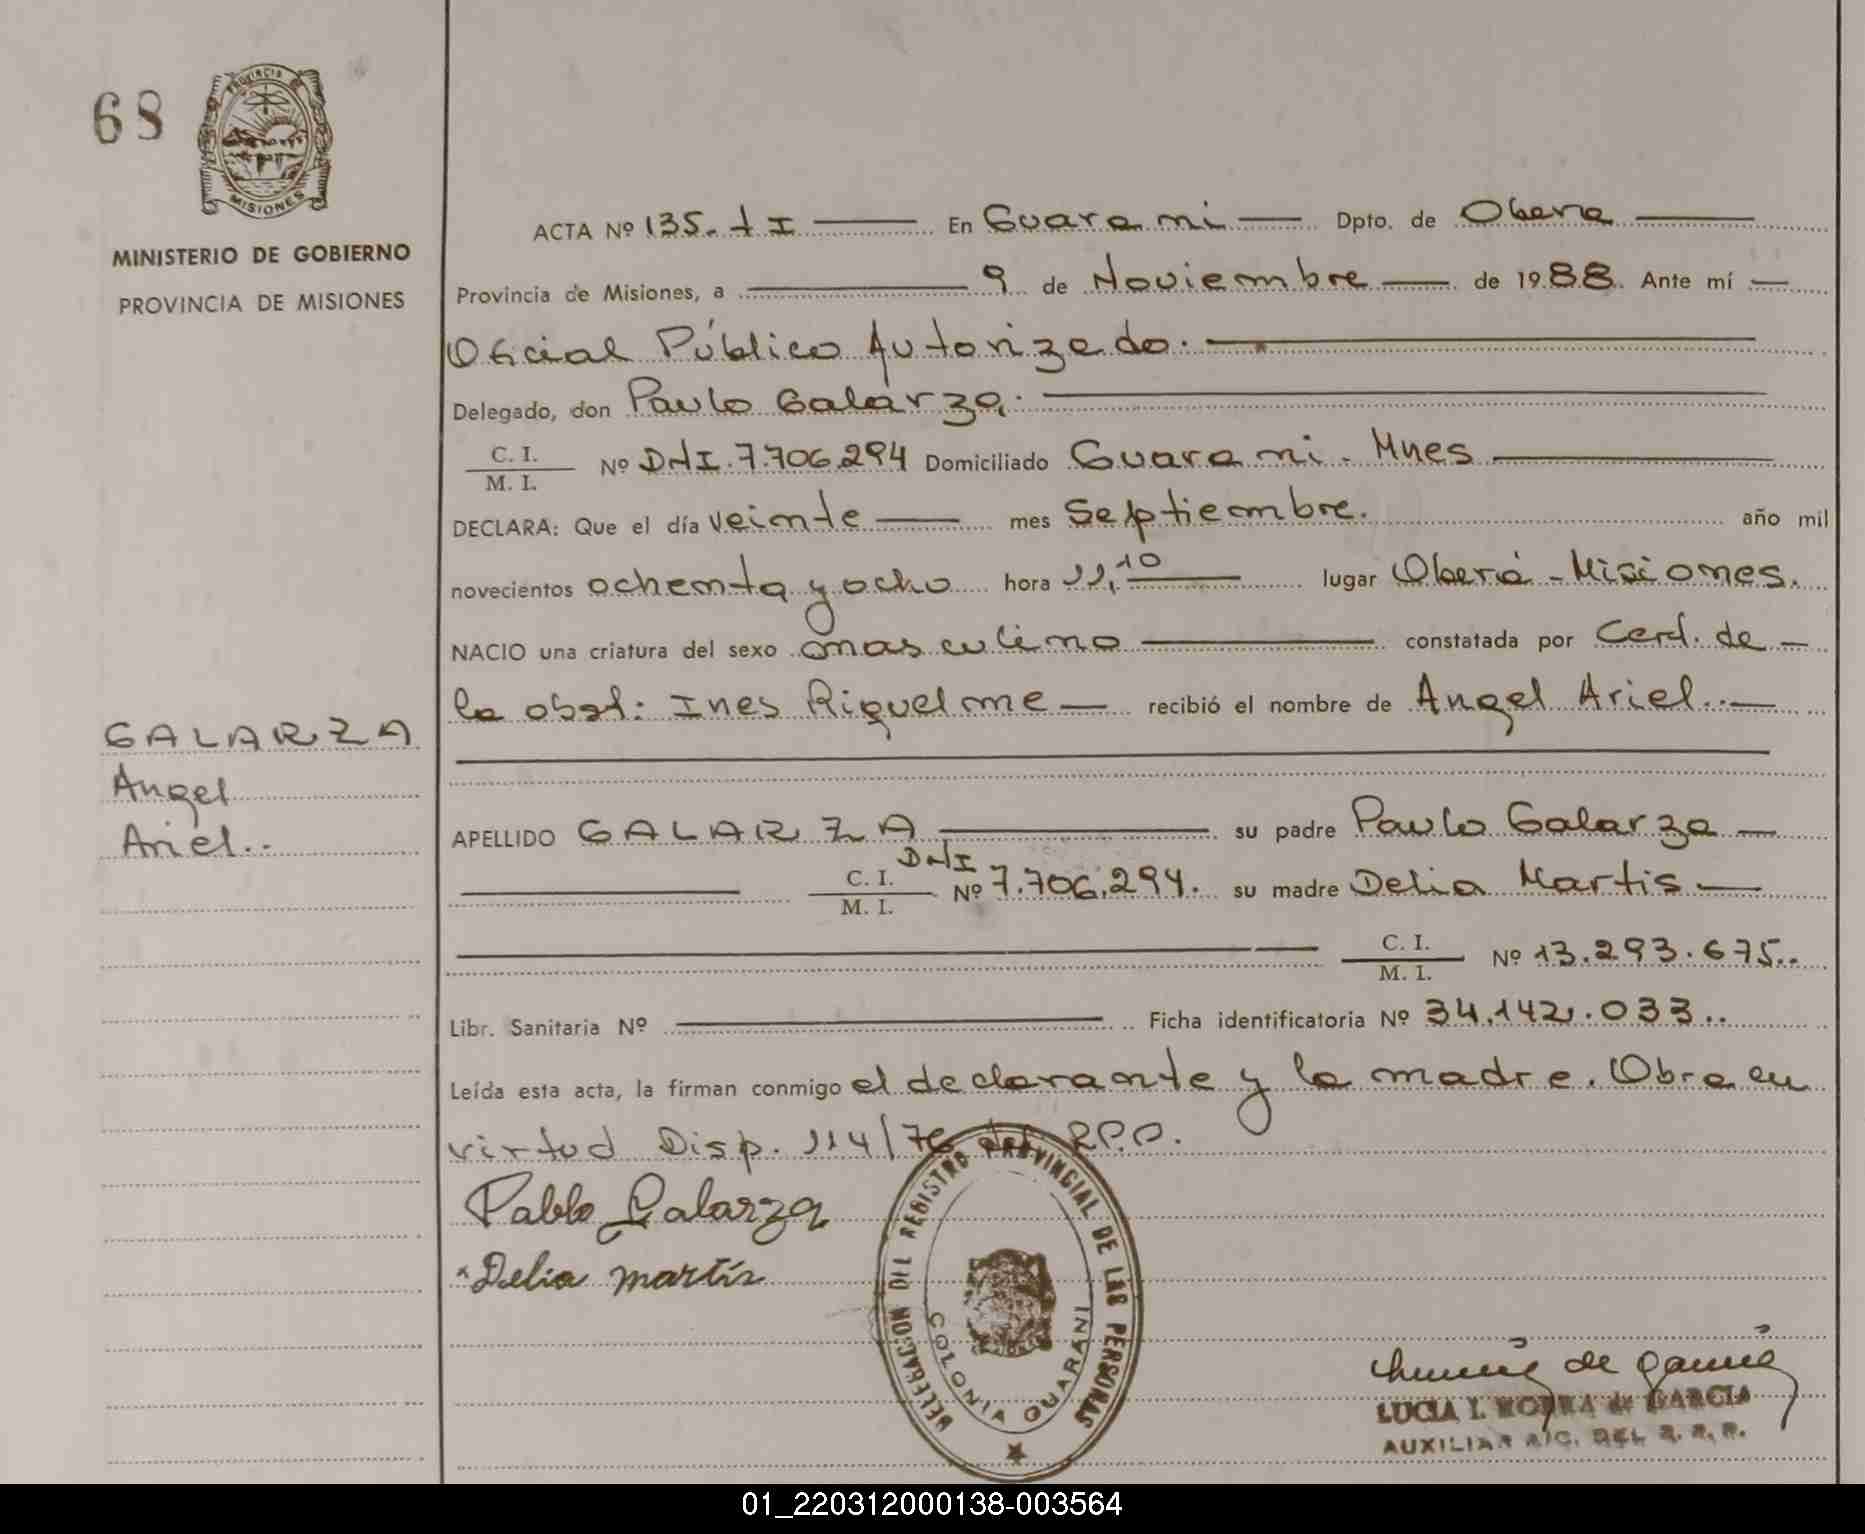 68
PROVINCIA DE
MISIONES
MINISTERIO DE GOBIERNO
PROVINCIA DE MISIONES
ACTA Nº 135. t I En Guarani Dpto. de Obera
Provincia de Misiones, a 9 de Noviembre de 1988. Ante mí
Oficial Público Autorizado.
Delegado, don Paulo Galarza.
C. I.
M. I. Nº DNI. 7.706.294 Domiciliado Guarani. Mnes
DECLARA: Que el día veinte mes Septiembre. año mil
novecientos ochenta y ocho hora 11,10 lugar Oberá - Misiones.
NACIO una criatura del sexo masculino constatada por Cerd. de
la obst: Ines Riquelme recibió el nombre de Angel Ariel..
GALARZA
Angel
Ariel..
APELLIDO GALARZA su padre Paulo Galarza
C. I.
M. I. DNI Nº 7.706.294. su madre Delia Martis
C. I.
M. I. Nº 13.293.675..
Libr. Sanitaria Nº Ficha identificatoria Nº 34.142.033..
Leída esta acta, la firman conmigo el declarante y la madre. Obra en
virtud Disp. 114/76 del R.P.P.
Pablo Galarza
Delia martis
DELEGACION DEL REGISTRO PROVINCIAL DE LAS PERSONAS
COLONIA GUARANI
de García
LUCIA I. de GARCIA
AUXILIAR A/C. DEL R. P. P.
01_220312000138-003564